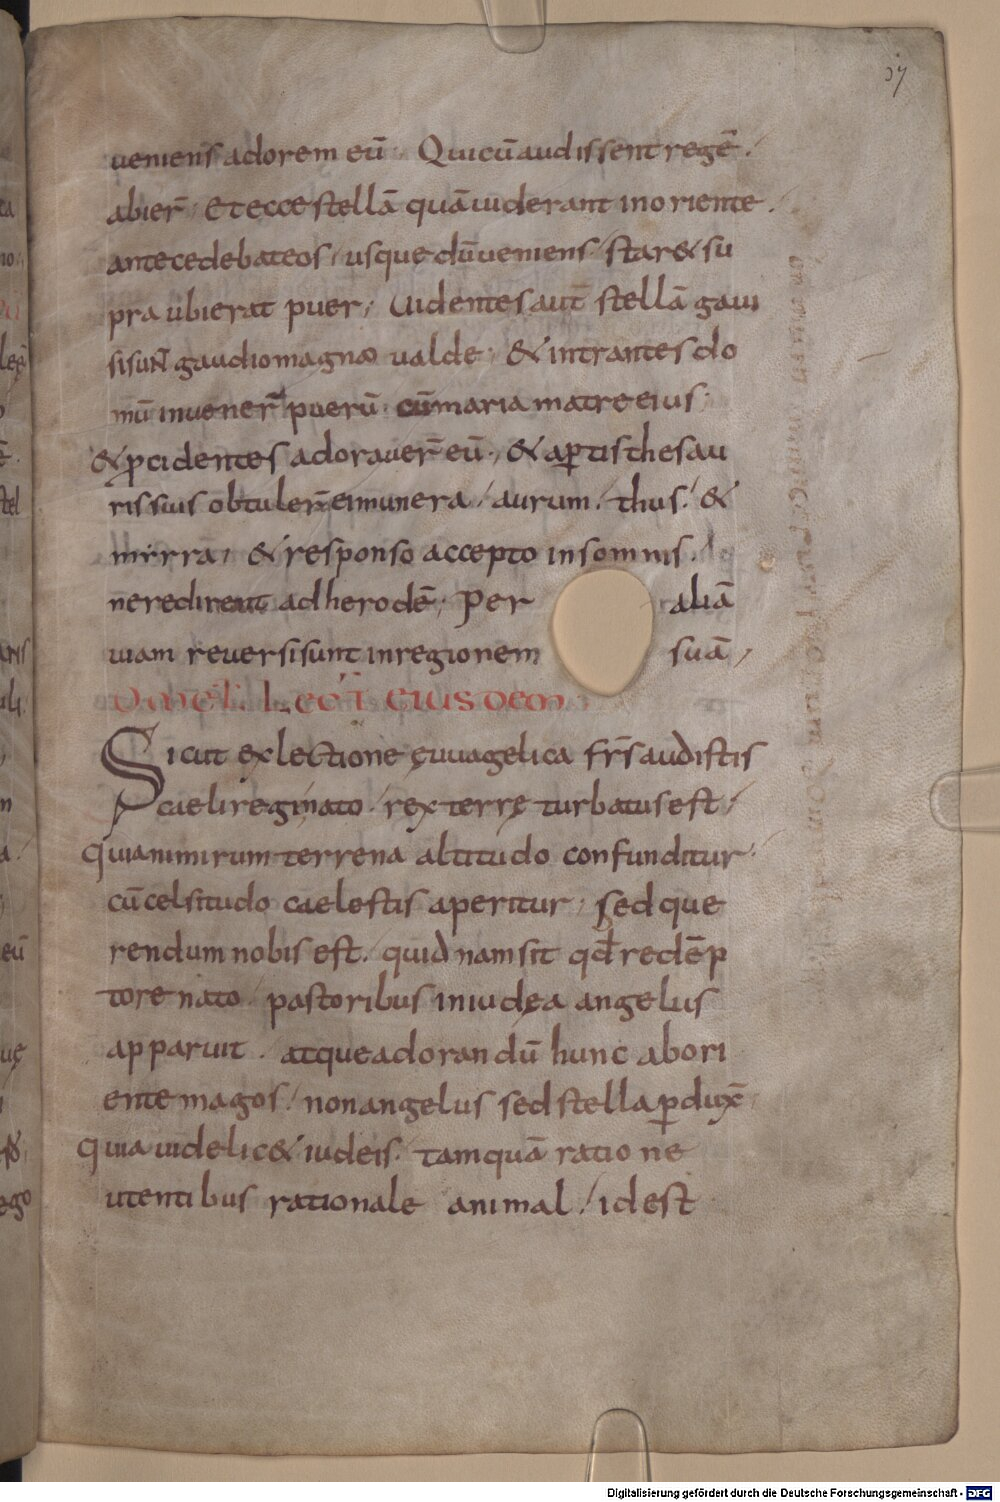 37
ueniens adorem eū. Qui cū audissent regē.
abier̄. Et ecce stellā quā uiderant in oriente.
antecedebat eos, usque dū ueniens staret su
pra ubi erat puer. Uidentes aut̄ stellā gaui
si sunt gaudio magno ualde. & intrantes do
mū inuener̄ puerū cū maria matre eius.
& p̱cidentes adorauer̄ eū. & ap̱tis thesau
ris suis obtuler̄ ei munera, aurum, thus, &
mirra. & responso accepto in somnis
ne redirent ad herodē. Per aliā
uiam reuersi sunt in regionem suā,
Omel. Lect eiusdem
Sicut ex lectione ęuuagelica fr̄s audistis
caeli regi nato rex terrę turbatus est,
quia nimirum terrena altitudo confunditur
cū celsitudo caelestis aperitur, sed que
rendum nobis est. quid nam sit qđ redēp
tore nato pastoribus in iudęa angelus
apparuit. atque adorandū hunc ab ori
ente magos, non angelus sed stella p̱dux̄
quia uidelic& iudeis, tamquā ratione
utentibus rationale animal, id est
Digitalisierung gefördert durch die Deutsche Forschungsgemeinschaft - DFG